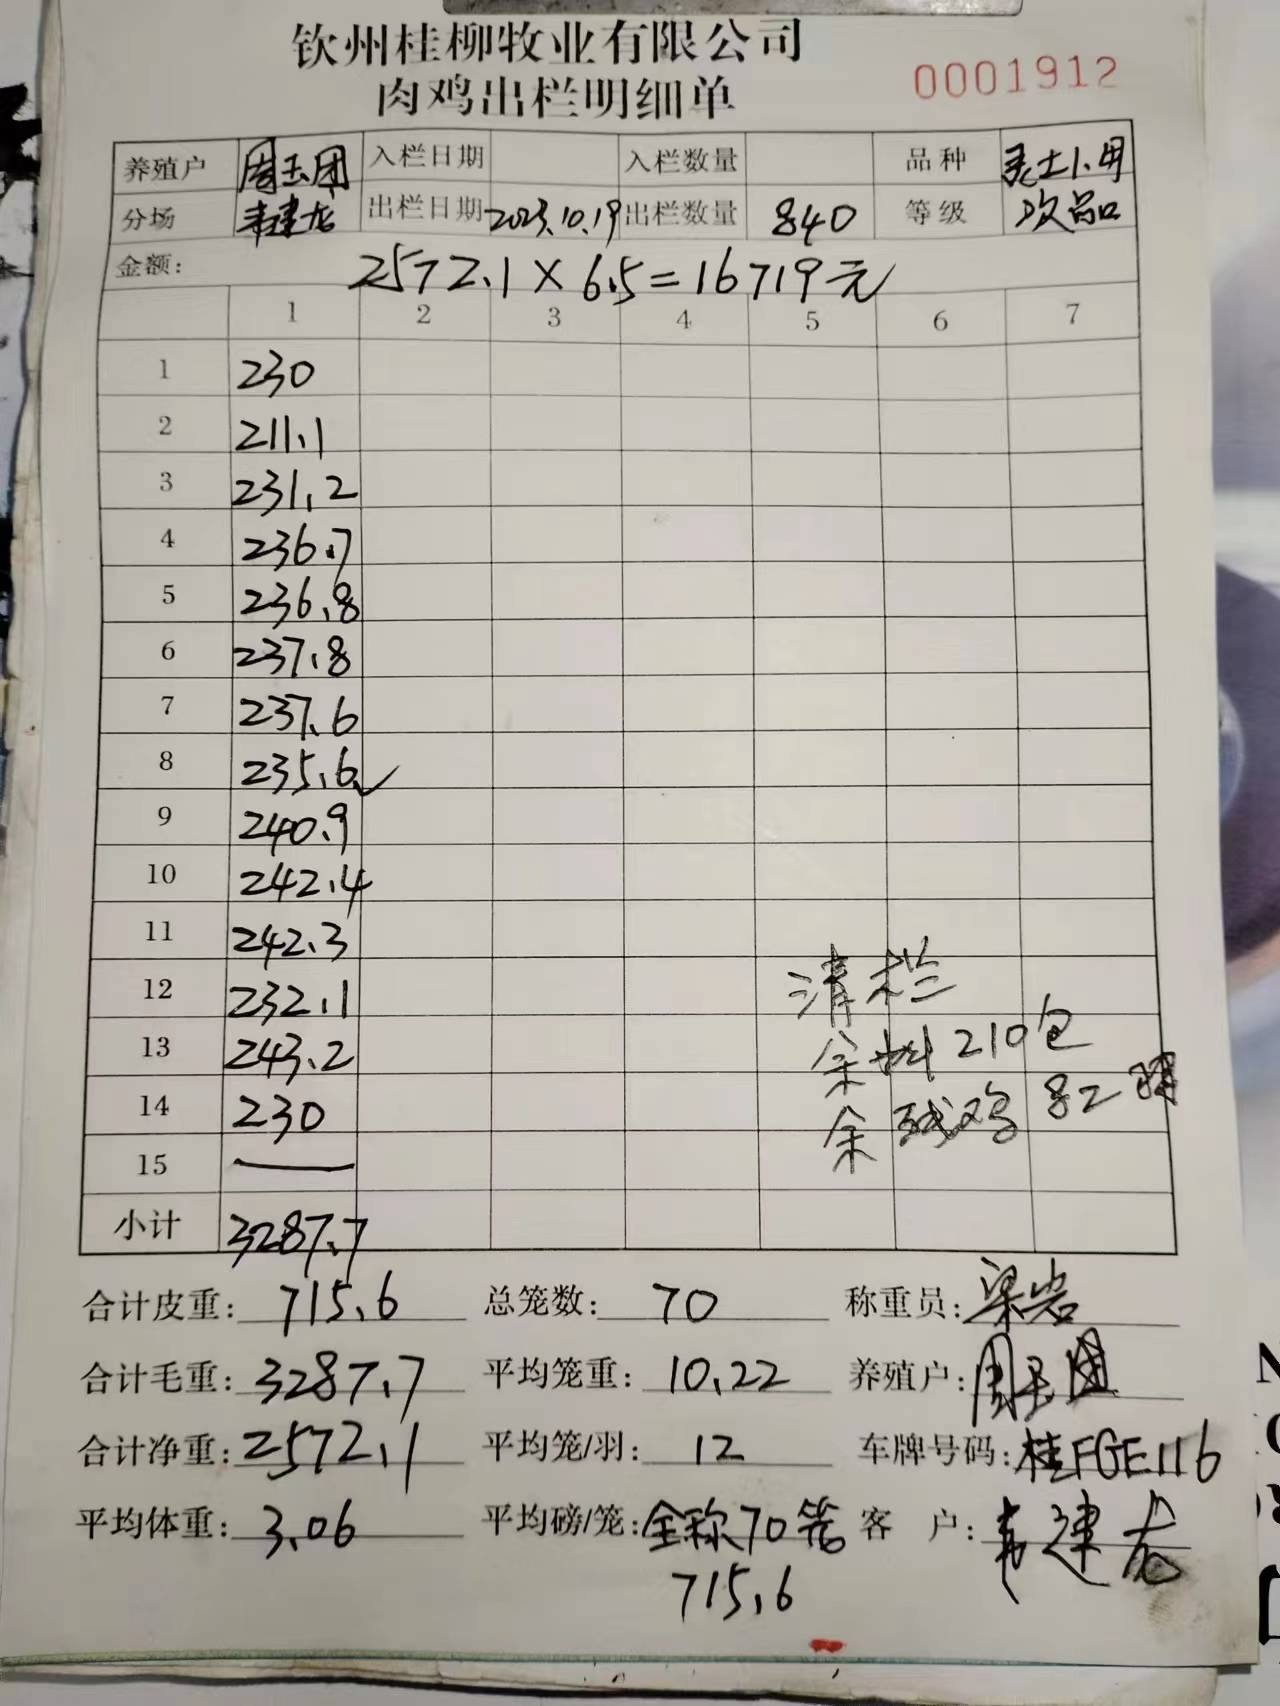 钦州桂柳牧业有限公司
肉鸡出栏明细单
0001912
养殖户 周玉团 入栏日期 入栏数量 品种 灵土小母
分场 韦建龙 出栏日期 2023.10.19 出栏数量 840 等级 次品
金额: 2572.1×6.5=16719元
1 2 3 4 5 6 7
1 230
2 211.1
3 231.2
4 236.7
5 236.8
6 237.8
7 237.6
8 235.6
9 240.9
10 242.4
11 242.3
12 232.1
13 243.2
14 230
15 —
清栏
余料210包
余残鸡82
小计 3287.7
合计皮重: 715.6 总笼数: 70 称重员: 梁岩
合计毛重: 3287.7 平均笼重: 10.22 养殖户: 周玉团
合计净重: 2572.1 平均笼/羽: 12 车牌号码: 桂FGE116
平均体重: 3.06 平均磅/笼: 全称70笼 客户: 韦建龙
715.6